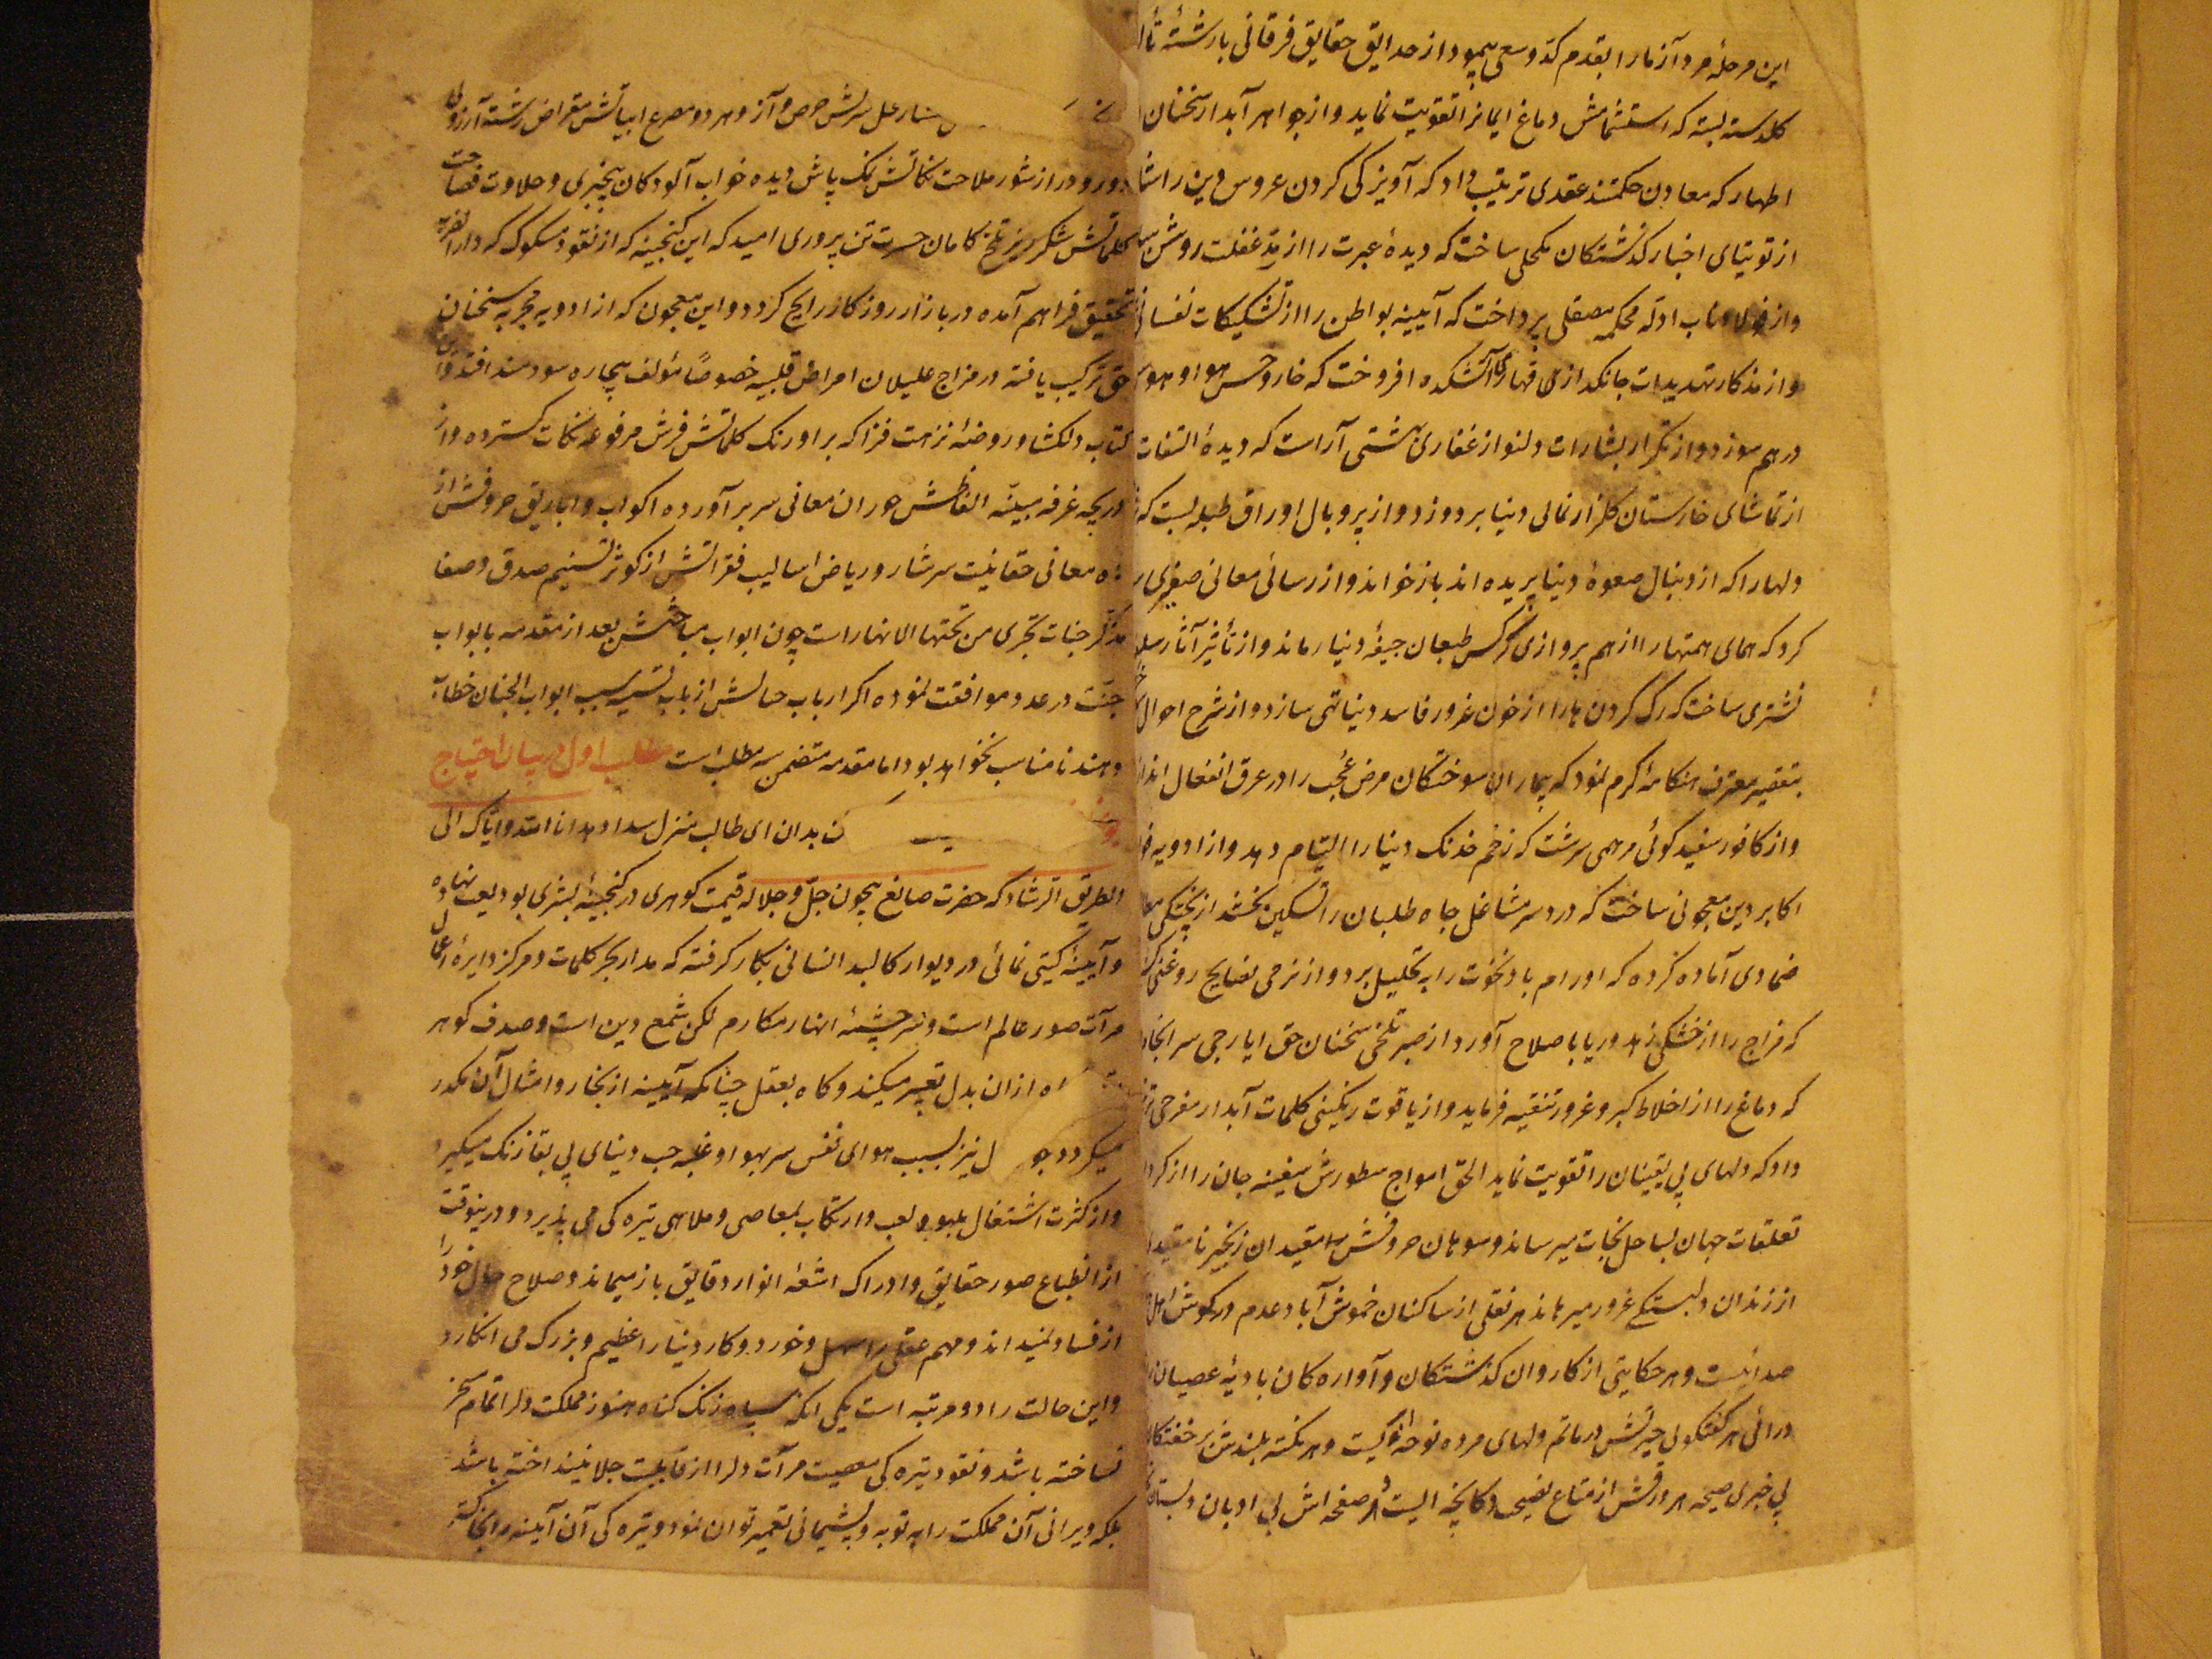 این مرحلهٔ مرد آزما را بقدم کدّ و سعی پیمود از حدایق حقایق فرقانی بارشتهٔ تأ
کلدسته بسته که استشمامش دماغ ایمانرا تقویت نماید و از جواهر آبدار سخنان
اطهار که معادن حکمتند عقدی ترتیب داد که آویزکی کردن عروس دین را شا
از توتیای اخبار کذشتکان مکحلی ساخت که دیدهٔ عبرت را از غفلت روشن
و از ادلّه محکمه مصقلی پرداخت که آیینه بواطن را از تشکیکات نفسانی
و از مذکار تهدیدات جانکداز قهاری آتشکده افروخت که خار و خس هوا و هوس
درهم سوزد و از تکرار بشارات دلنواز غفاری بهشتی آراست که دیدهٔ التفات
از تماشای خارستان کلزار نمای دنیا بردوزد و از پر و بال اوراق طبله بست که
دلهارا که از دنبال صعوهٔ دنیا پریده اند باز خواند و از رسائی معانی صفیری
کرد که همای همتها را از هم پروازی کرکس طبعان جیفهٔ دنیا رماند و از تأثیر آثار
نشتری ساخت که رک کردن هارا از خون غرور فاسد دنیا تهی سازد و از شرح احوال
هنکامهٔ کرم نمود که بیماران سوختکان مرض عجب را در عرق انفعال انداز
و از کافور سفید کوئی مرهمی سرشت که زخم خدنک دنیا را التیام دهد و از ادویه
اکابر دین معجونی ساخت که درد سر مشاغل جاه طلبان را تسکین بخشد از پختکی
ضمادی آماده کرده که اورام باد نخوت را به تحلیل برد و از نرمی نصایح روغنی
که مزاج را از خشکی زهد ریا باصلاح آورد از صبر تلخی سخنان حق ایارجی سرانجام
که دماغ را از اخلاط کبر و غرور تنقیه فرماید و از یاقوت رنکینی کلمات آبدار مفرحی
داد که دلهای بی یقینان را تقویت نماید الحق امواج سطورش سفینه جان را از
تعلقات جهان بساحل نجات میرساند و سوهان حروفش مقیدان زنجیر نا
از زندان دلبستکی غرور میرهاند هر نقلی از ساکنان خموش آباد عدم در کوش اهل
صدائیست و هر حکایتی از کاروان کذشتکان و آواره کان بادیهٔ عصیان
درائی هر کفتکوی حیرتش در ماتم دلهای مرده نوحه کریست و هر نکته بلندش بر خفتکان
بی خبری صیحه هر ورقش از متاع نصیحت دکانچه ایست و هر صفحه اش بی ادبان
سر عمل سرکش حرص و آز و هر دو مصرع ابیاتش مقراض رشته آرزوی
دور و دراز شور ملاحت نکاتش نمک پاش دیده خواب آلودکان بیخبری و حلاوت فصاحت
کلماتش شکر ریز تلخ کامان حسرت تن پروری امید که این کنجینه که از نقود مسکوک که دار الضرب
تحقیق فراهم آمده در بازار روزکار رایج کردد و این معجون که از ادویه مجربه سخنان
حق ترکیب یافته در مزاج علیلان امراض قلبیه خصوصاً مؤلف بیچاره سودمند افتد و این
کتاب دلکشا و روضهٔ نزهت فزا که بر اورنک کلماتش فرش مرفوعه نکات کسترده و از
دریچه غرفه مبینهٔ الفاظش حوران معانی سر برآورده اکواب و اباریق حروفش از
معانی حقانیت سرشار و ریاض اسالیب فقراتش از کوثر تسنیم صدق و صفا
مذکر جنات تجری من تحتها الانهارست چون ابواب مباحثش بعد از مقدمه با ابواب
جنّت در عدد موافقت نموده اکر ارباب حالش از باب تسمیه سبب ابواب الجنان خطاب
دهند نا مناسب نخواهد بود اما مقدمه متضمن سه مطلب است مطلب اول در بیان احتیاج
بدان ای طالب منزل سداد هدانا الله و ایّاک الی
الطریق الرشاد که حضرت صانع بیچون جلّ و جلاله قیمت کوهری در کنجینهٔ بشری بودیعت نهاده
و آیینهٔ کیتی نمائی در دیوار کالبد انسانی بکار کرفته که مدار بحر کلمات و مرکز دایرهٔ اعمال
مرآت صور عالم است و سر چشمهٔ انهار مکارم لکن شمع دین است و صدف کوهر
از ان بدل تعبیر میکنند و کاه بعقل چنانکه آیینه از بخار و امثال آن مکدر
میکردد نیز بسبب هوای نفس سر بهوا و غلبه حب دنیای بی بقا زنک میکیرد
و از کثرت اشتغال بلهو و لعب و ارتکاب بمعاصی و ملاهی تیره کی می پذیرد و درینوقت
از انطباع صور حقایق و ادراک اشعهٔ انوار دقایق باز میماند و صلاح حال خود را
از فساد نمیداند و مهم عقبی را سهل و خورد و کار دنیا را عظیم و بزرک می انکارد
و این حالت را دو مرتبه است یکی انکه سپاه زنک کناه هنوز مملکت دلرا تمام مسخر
نساخته باشد و نفوذ تیره کی معصیت مرآت دلرا از قابلیت جلا نینداخته باشد
بلکه ویرانی آن مملکت را به توبه و پشیمانی تعمیر توان نمود و تیره کی آن آیینه را